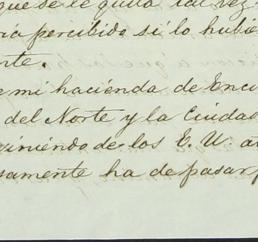 que se le quita tal vez
percibido si lo hubie
nte.
e mi hacienda de Enci
del Norte y la Ciudad
viniendo de los E. U. a
samente ha de pasar p